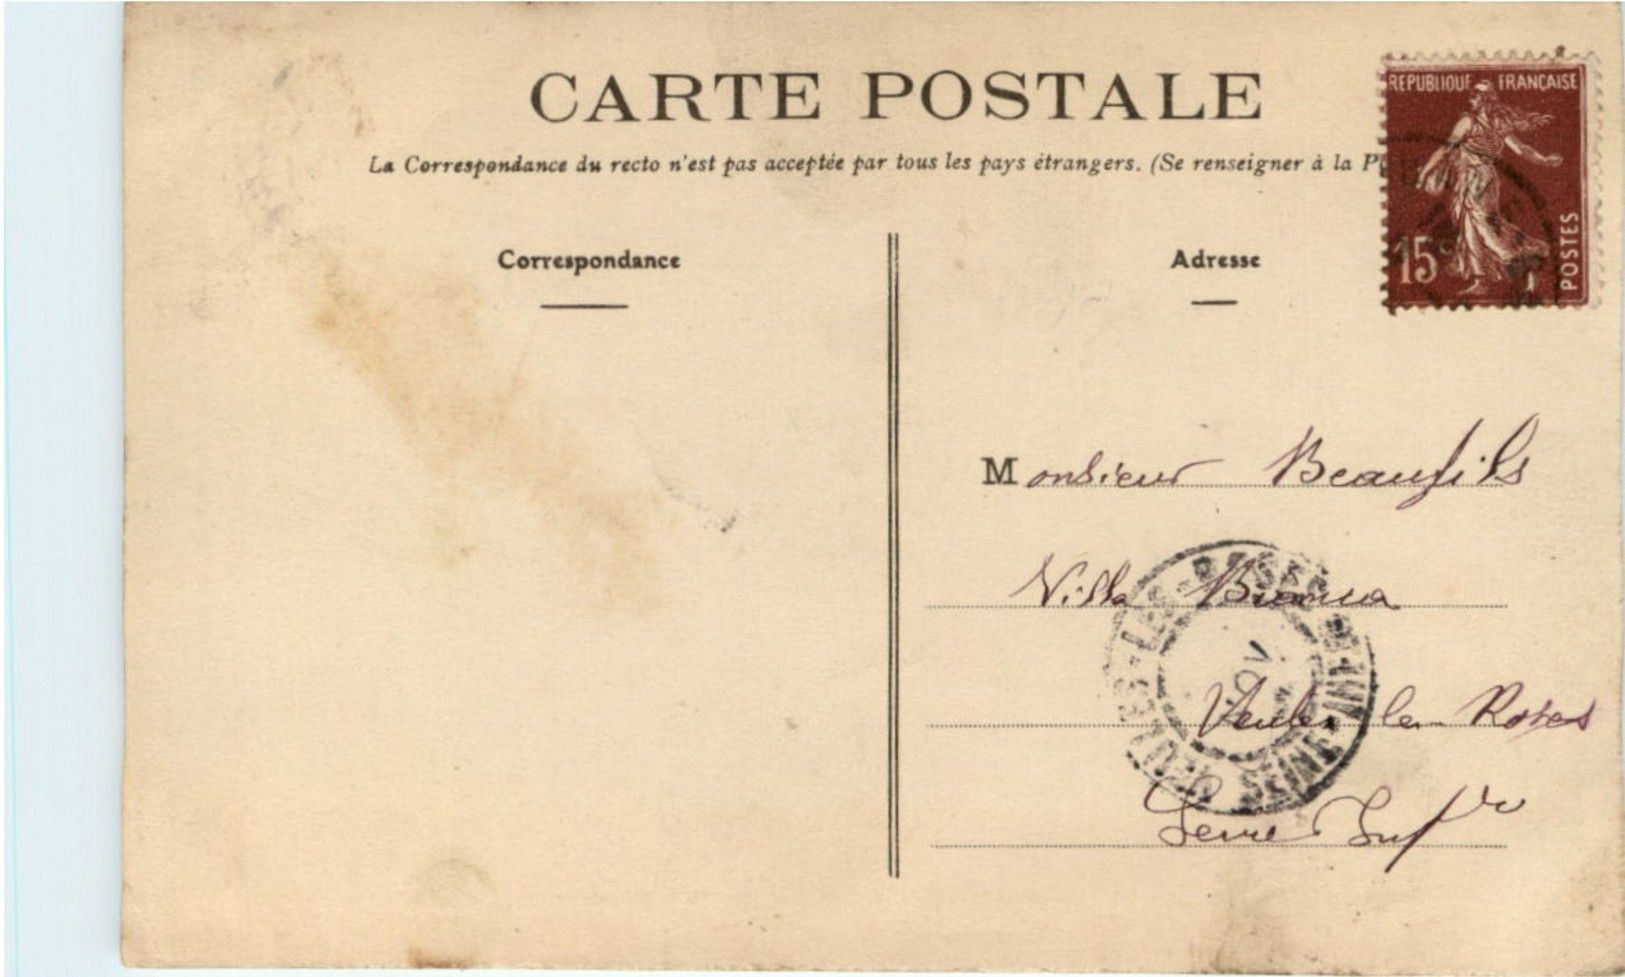 CARTE POSTALE
REPUBLIQUE FRANÇAISE
La Correspondance du recto n'est pas acceptée par tous les pays étrangers. (Se renseigner à la P
15c
POSTES
Correspondance
Adresse
Monsieur Beaufils
Villa Bianca
Veules les Roses
Seine Infre
VEULES-LES-ROSES
NOV
SEINE-INFRE